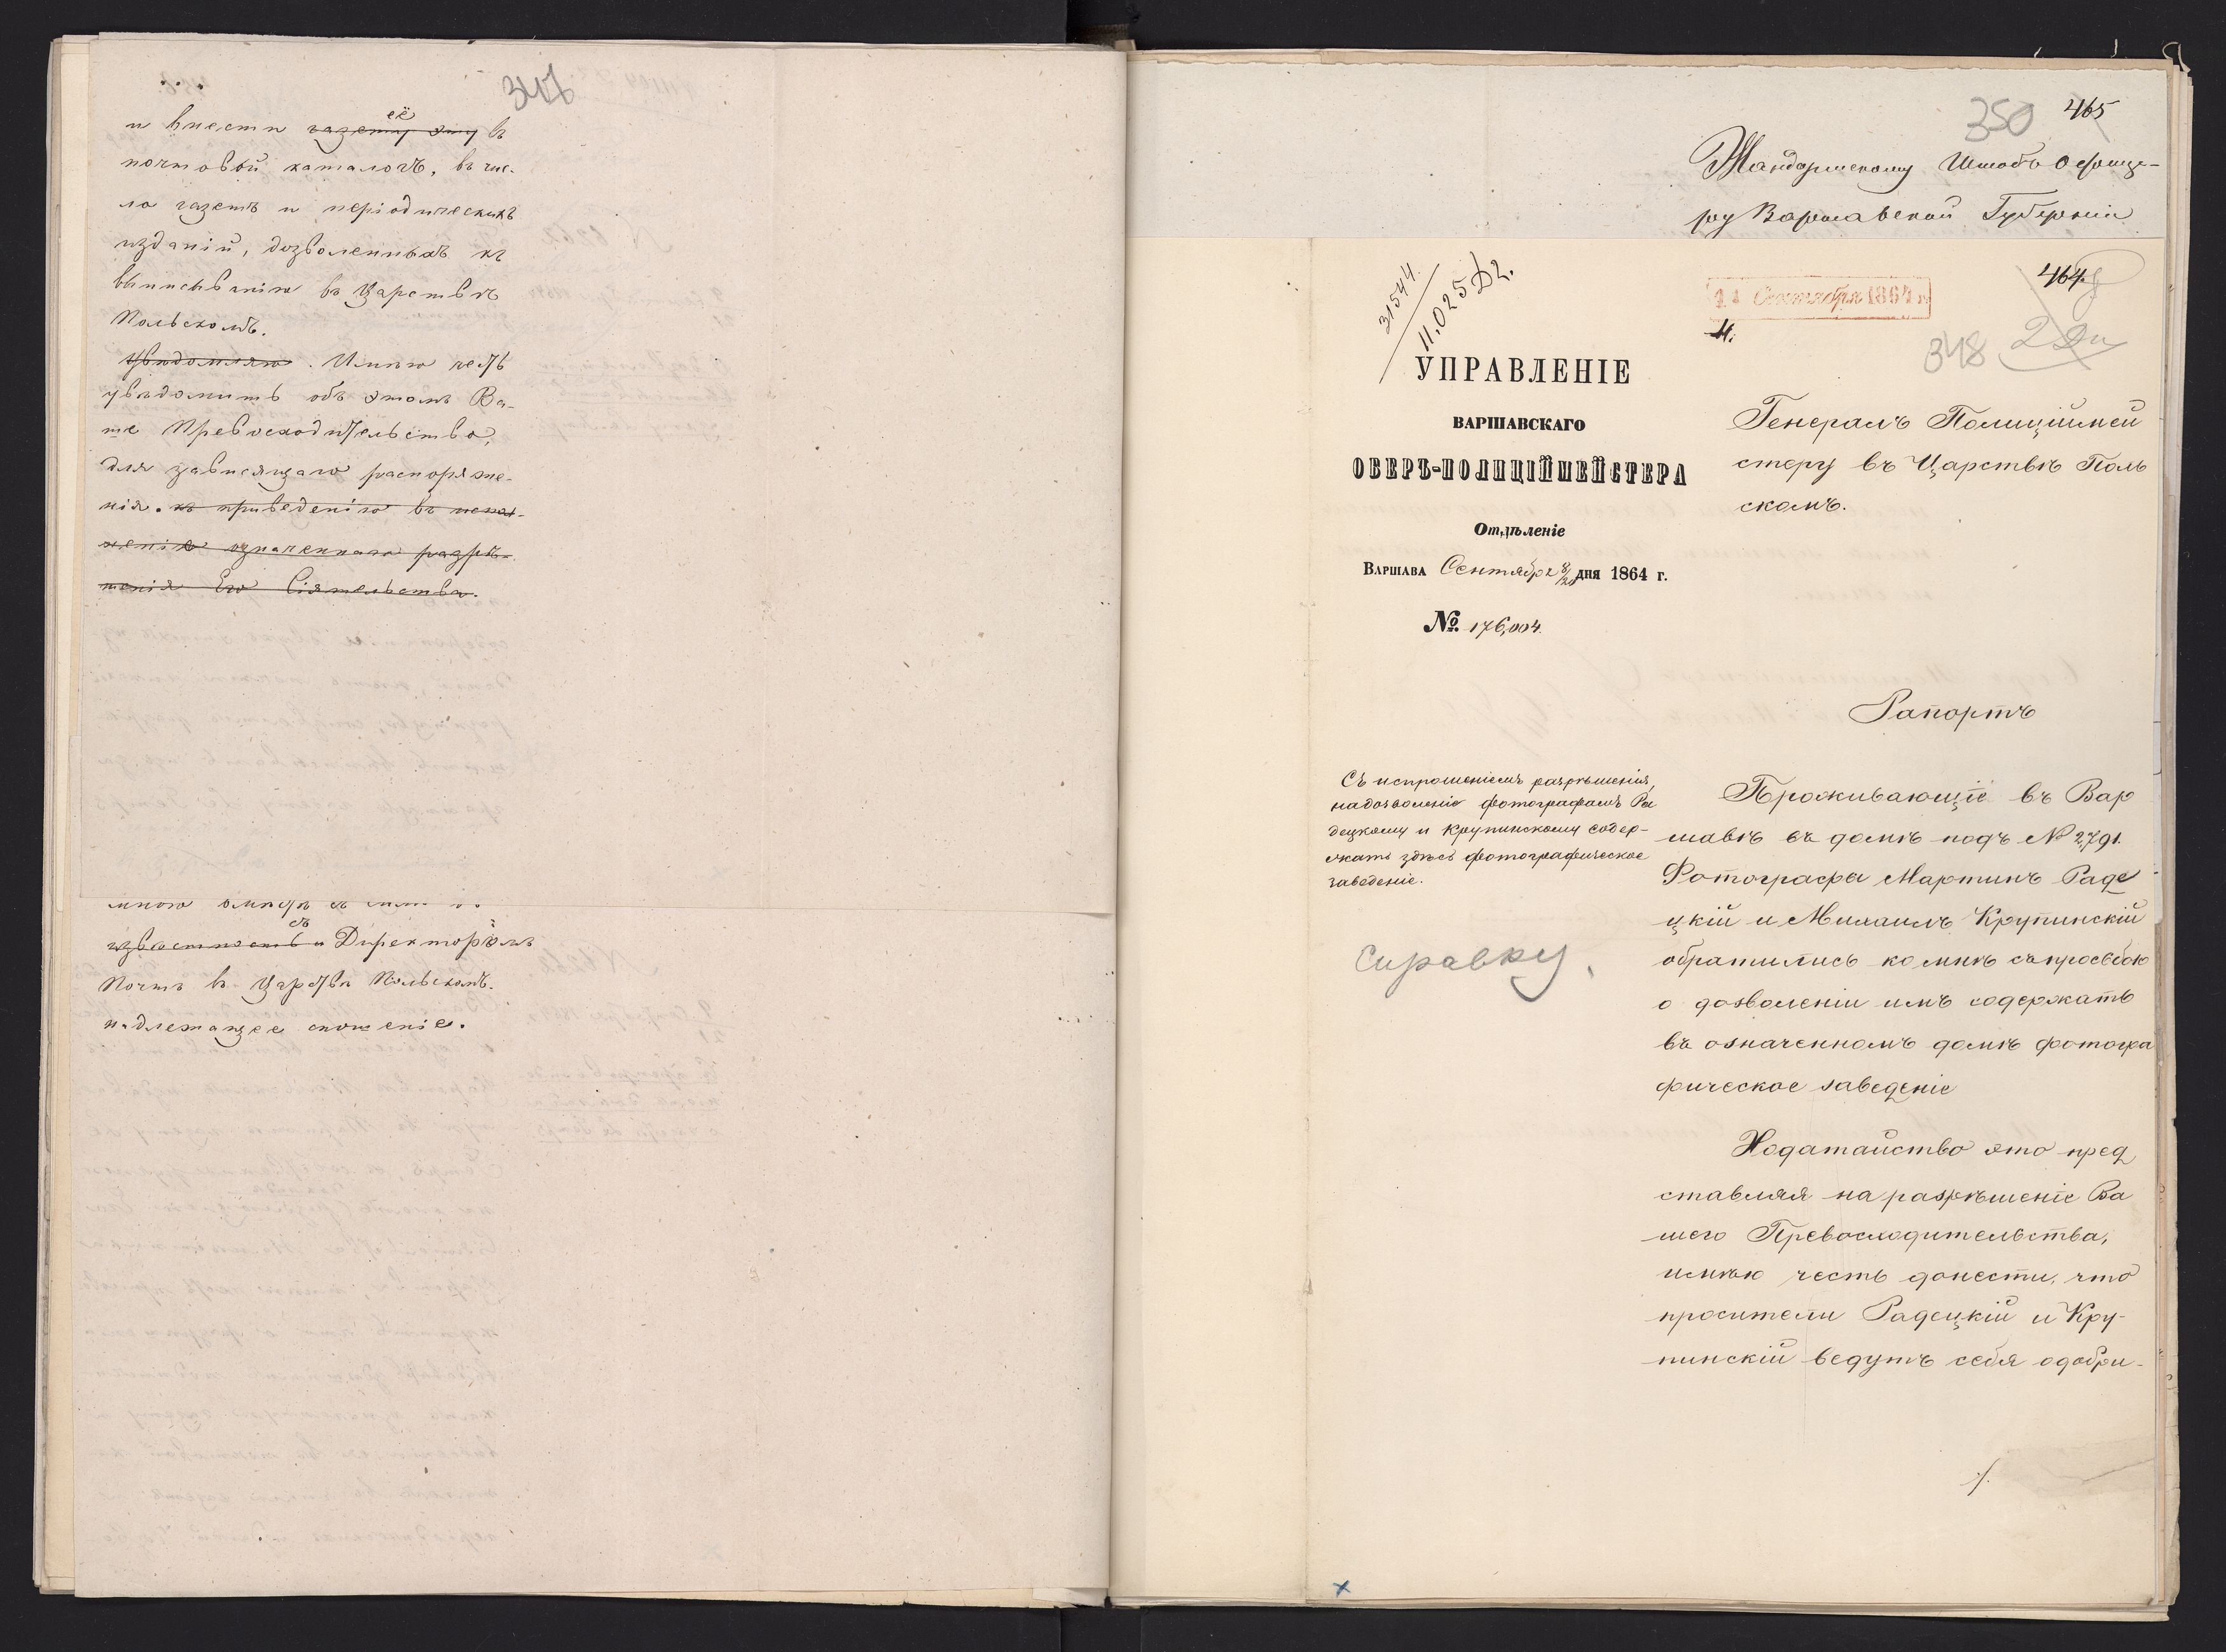 347
её
и внести газету эту въ
почтовый каталогъ, въ чис-
ло газетъ и періодическихъ
изданій, дозволенныхъ къ
выписыванію въ Царствѣ
Польскомъ.
увѣдомляю. Имѣю честь
увѣдомить объ этомъ Ва-
ше Превосходительство,
для зависящаго распоряже-
нія. къ приведенію въ испол-
неніе означеннаго разрѣ-
шенія Его Сіятельства.
мною
съ
извѣстность и Директоромъ
Почтъ въ Царствѣ Польскомъ.
надлежащее сношеніе.
350 465
Жандармскому Штабъ Офице-
ру Варшавской Губерніи
31544
11,025 Д2.
11 Сентября 1864 г.
464
348
УПРАВЛЕНІЕ
ВАРШАВСКАГО
ОБЕРЪ-ПОЛИЦІЙМЕЙСТЕРА
Отдѣленіе
ВАРШАВА Сентября 8/20 дня 1864 г.
№ 176,004.
Генералъ Полиціймей
стеру въ Царствѣ Поль
скомъ.
Рапортъ
Съ испрошеніемъ разрѣшенія,
на дозволеніе фотографамъ Ра
децкому и Крупинскому содер-
жать здѣсь фотографическое
заведеніе.
Справку.
Проживающіе въ Вар
шавѣ въ домѣ подъ № 2,791.
Фотографы Мартинъ Раде
цкій и Михаилъ Крупинскій
обратились ко мнѣ съ просьбою
о дозволеніи имъ содержать
въ означенномъ домѣ фотогра
фическое заведеніе
Ходатайство это пред
ставляя на разрѣшеніе Ва
шего Превосходительства,
имѣю честь донести, что
просители Радецкій и Кру-
пинскій ведутъ себя одобри-
./.